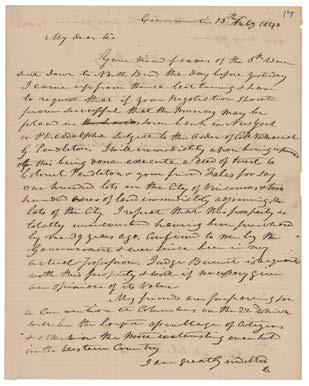 17
Cincinnati 15th Feby 1840
My dear Sir
Your kind favors of the 8th were
sent down to North Bend the day before yesterday
I came up from thence last evening & have
to request that if your Negotiation should
prove successful that the Money may be
placed in some bank in New York
or Philadelphia subject to the order of Col. Nathaniel
G Pendleton. I will immediately upon being informed
of this being done execute a Deed of trust to
Colonel Pendleton & your friend Hales for say
one hundred lots in the City of Vincennes & two
hundred acres of land immediately adjoining the
lots of the City. I repeat that this property is
totally unincumbered having been purchased
by me 39 years ago, confirmed to me by the
Government & ever since been in my
actual possession. Judge Burnet is acquainted
with this property & will if necessary give
an opinion of its value
My friends are preparing for
a Convention at Columbus on the 22d which
will be the largest assemblage of Citizens
& the most interesting ever held
in the Western Country
I am greatly indebted
to